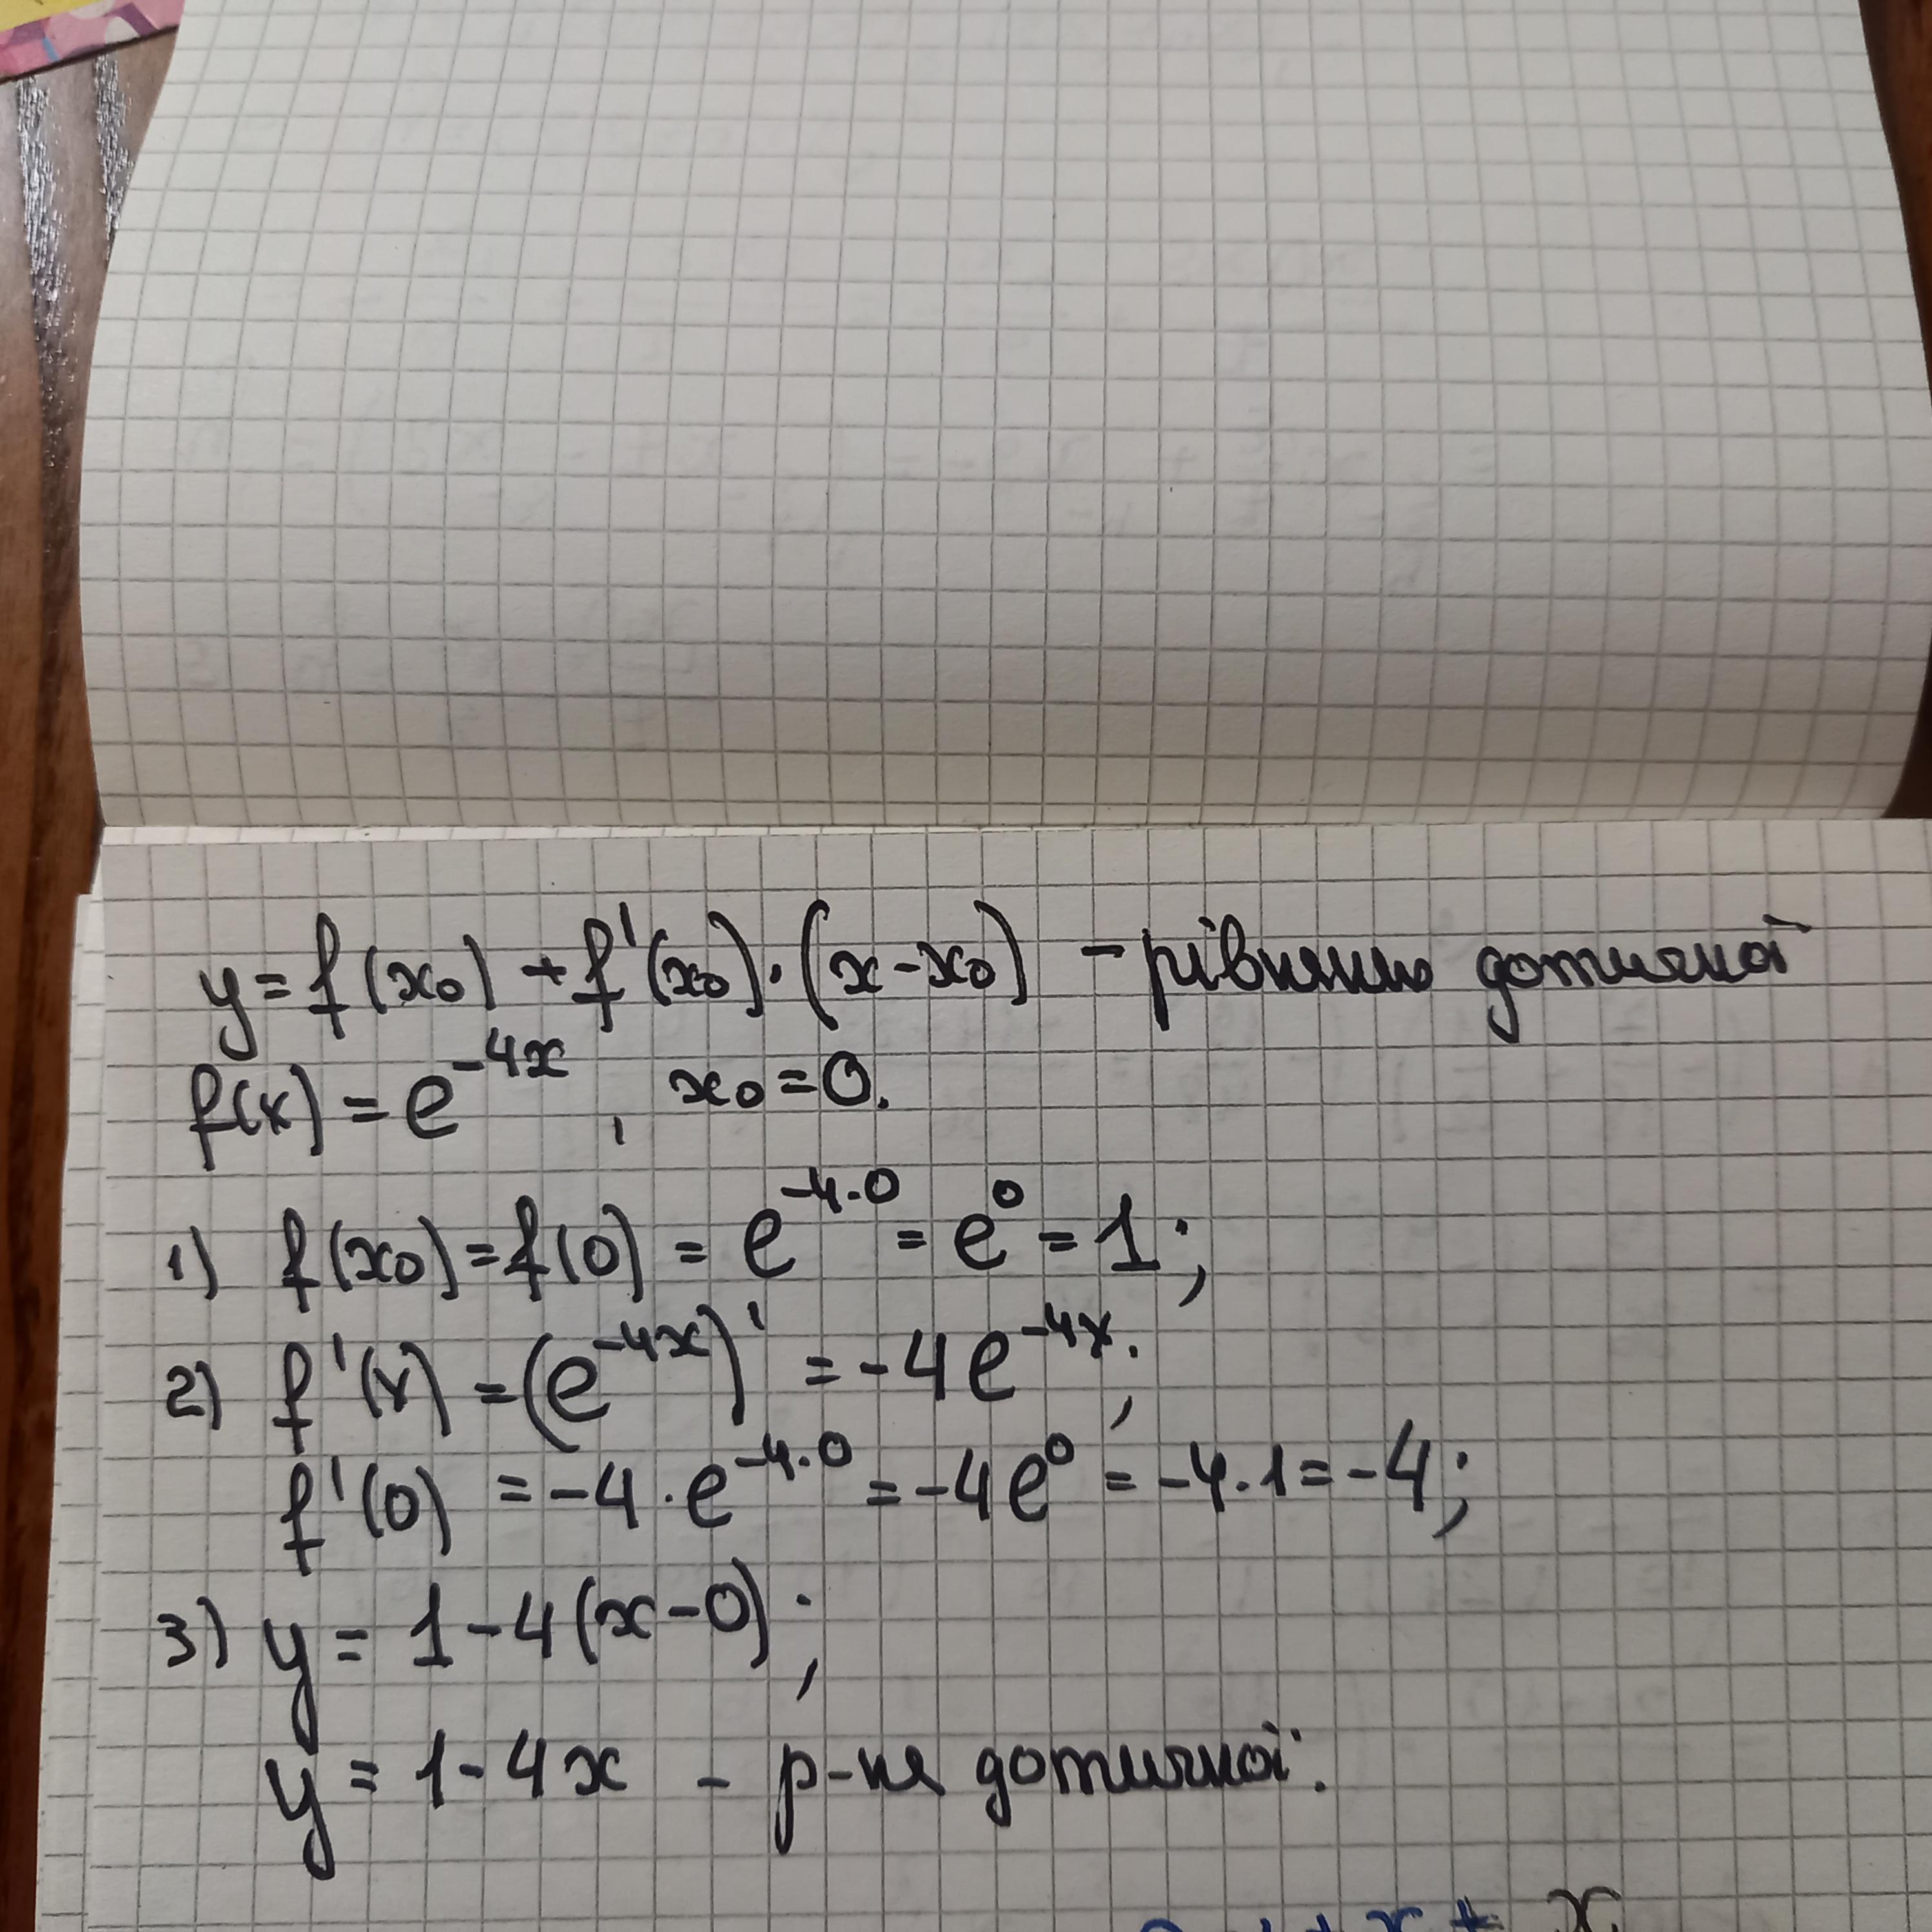 y = f(x₀) + f'(x₀)·(x-x₀) - рівняння дотичної
f(x) = e^{-4x}, x₀ = 0.
1) f(x₀) = f(0) = e^{-4·0} = e⁰ = 1;
2) f'(x) = (e^{-4x})' = -4e^{-4x};
f'(0) = -4·e^{-4·0} = -4e⁰ = -4·1 = -4;
3) y = 1-4(x-0);
y = 1-4x - р-ня дотичної.